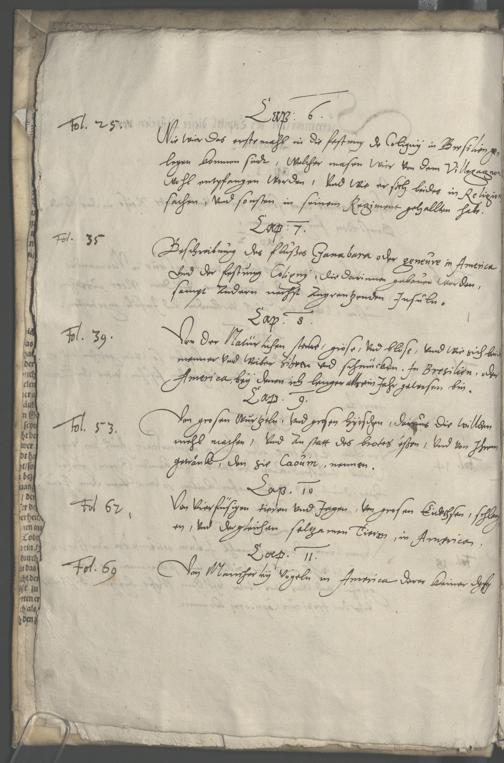 Cap. 6.
Fol. 25. Wie wir das erste mahl in die festung de Coligny in Bresilien ge-
legen kommen sind, welcher masen wir von dem Villegagnon
wohl entpfangen worden, und wie er sich beides in Religion
sachen, und sonsten in seinem Regiment gehallten hab.
Cap. 7.
Fol. 35 Beschreibung des flusses Ganabara oder geneure in America
und der festung Coligny, die darinnen gebauet worden,
sampt andern nechst angrentzenden Insuln.
Cap. 8.
Fol. 39. Von der Natürlichen stercke, gröse, und blöse, und wie sich
menner und Weiber zieren und schmücken, in Bresilien, oder
America, bey denen ich lenger als ein Jahr gewesen bin.
Cap. 9.
Fol. 53. Von grosen Wurtzeln, und grosen hirschen, daraus die willden
mehl machen, und an statt des brotes essen, und von Ihrem
getränk, den sie Caouin, nennen.
Cap. 10
Fol 62, Von Vierfüsigen tieren und Jagen, von grosen Eidechsen, schlang
en, und dergleichen seltzamen Tieren, in American.
Cap. 11.
Fol. 69 Von Mancherley Vögeln in America deren keiner